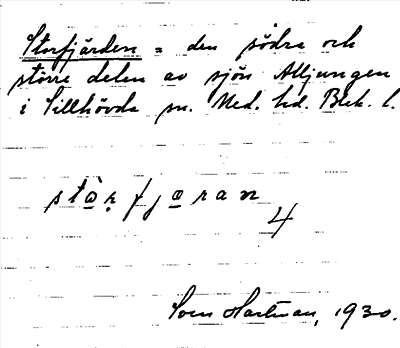 Storfjärden = den södra och
större delen av sjön Alljungen
i Sillhövda sn. Med. hd. Blek. l.
stòr̥fjæran
4
Sven Hartman, 1930.